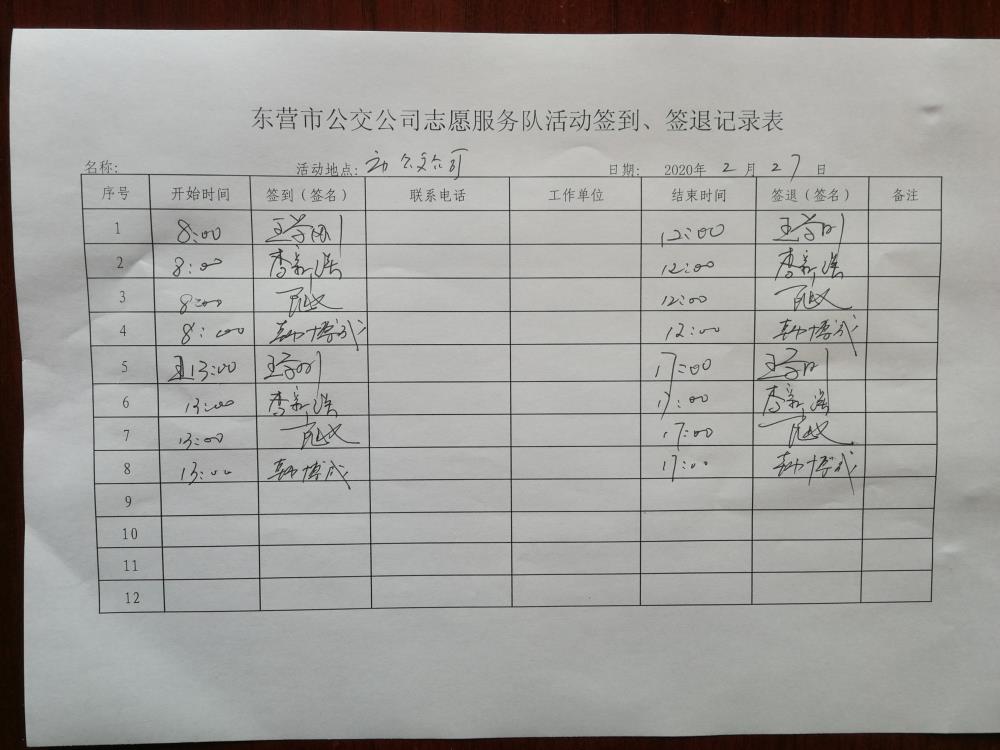 东营市公交公司志愿服务队活动签到、签退记录表
名称: 活动地点: 公交公司 日期: 2020年 2 月 27 日
序号 开始时间 签到（签名） 联系电话 工作单位 结束时间 签退（签名） 备注
1 8:00 12:00
2 8:00 李新 12:00 李新
3 8:00 12:00
4 8:00 韩博武 12:00 韩博武
5 13:00 17:00
6 13:00 李新 17:00 李新
7 13:00 17:00
8 13:00 韩博武 17:00 韩博武
9
10
11
12